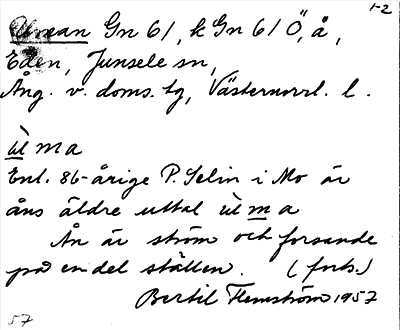 1-2
Uman Gn 61, k Gn 61 Ö, å,
Eden, Junsele sn,
Ång. v. doms. tg, Västernorrl. l.
ùl m a
Enl. 86-årige P. Selin i Mo är
åns äldre uttal ùl m a
Ån är ström och forsande
på en del ställen. (forts.)
Bertil Flemström 1957
57